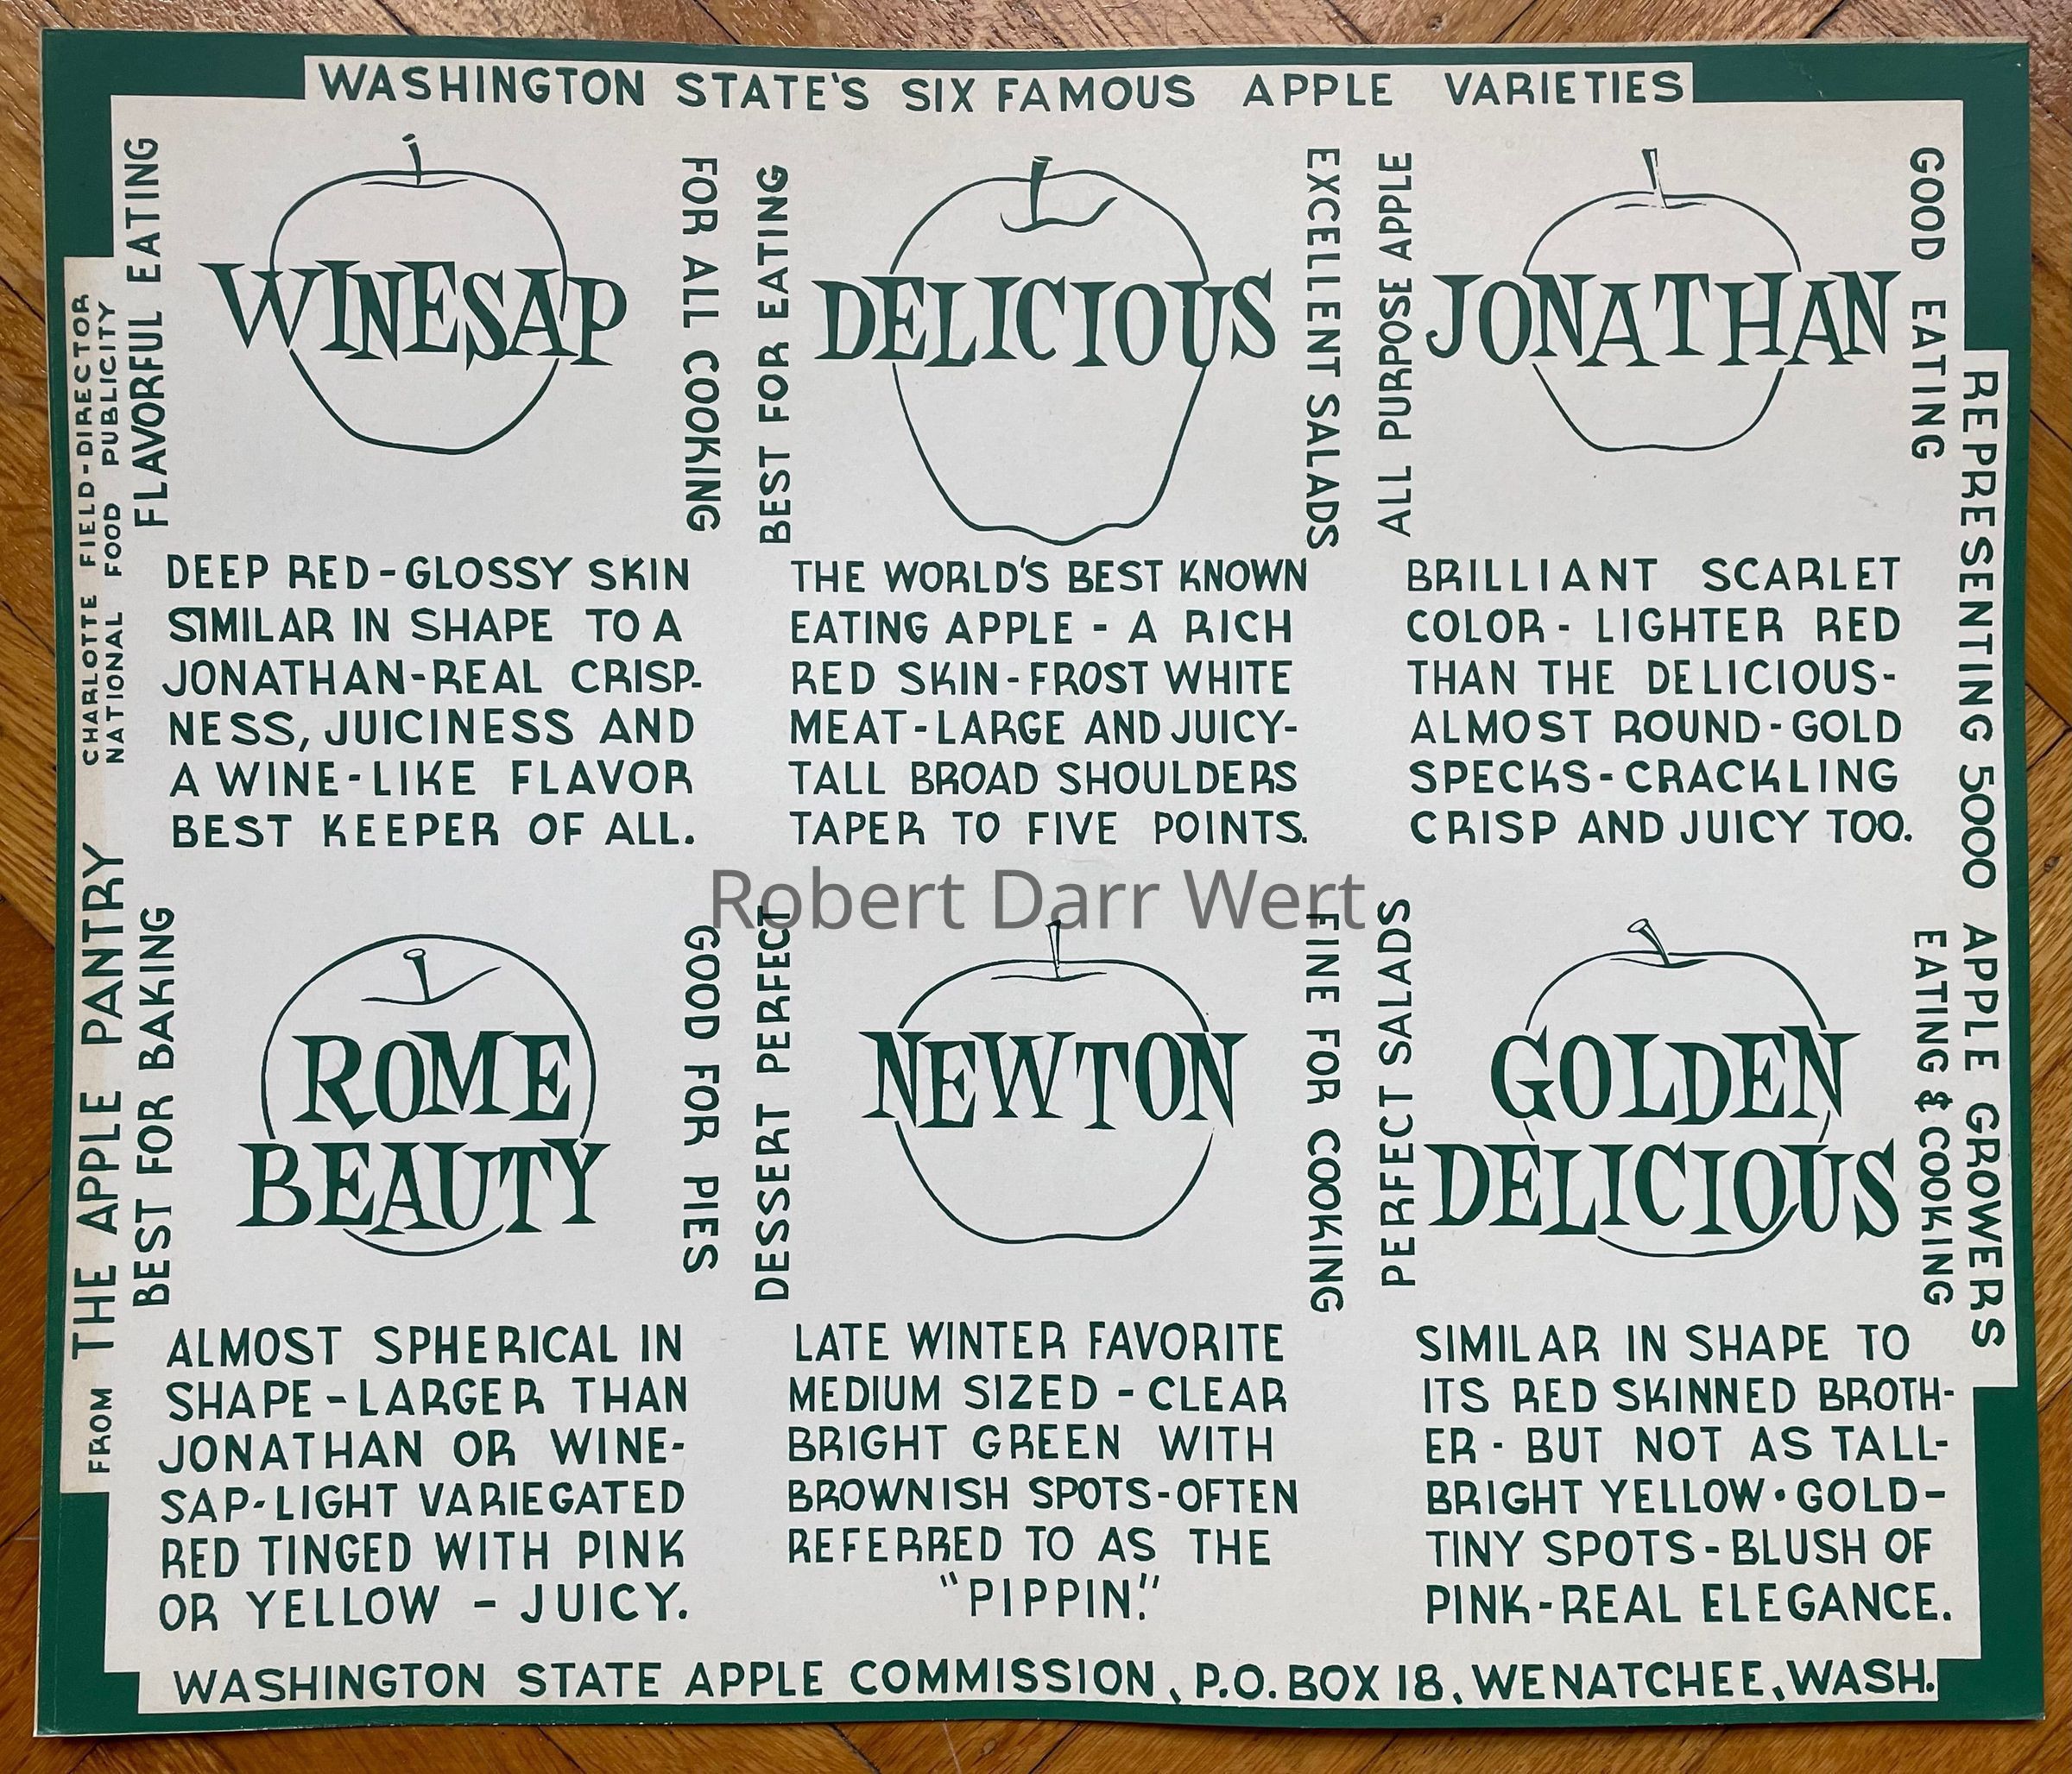 WASHINGTON STATE'S SIX FAMOUS APPLE VARIETIES
FROM THE APPLE PANTRY
CHARLOTTE FIELD-DIRECTOR
NATIONAL FOOD PUBLICITY
FLAVORFUL EATING
WINESAP
FOR ALL COOKING
DEEP RED-GLOSSY SKIN
SIMILAR IN SHAPE TO A
JONATHAN-REAL CRISP-
NESS, JUICINESS AND
A WINE-LIKE FLAVOR
BEST KEEPER OF ALL.
BEST FOR EATING
DELICIOUS
EXCELLENT SALADS
THE WORLD'S BEST KNOWN
EATING APPLE - A RICH
RED SKIN-FROST WHITE
MEAT-LARGE AND JUICY-
TALL BROAD SHOULDERS
TAPER TO FIVE POINTS.
ALL PURPOSE APPLE
JONATHAN
GOOD EATING
BRILLIANT SCARLET
COLOR- LIGHTER RED
THAN THE DELICIOUS-
ALMOST ROUND-GOLD
SPECKS-CRACKLING
CRISP AND JUICY TOO.
REPRESENTING 5000 APPLE GROWERS
Robert Darr Wert
BEST FOR BAKING
ROME
BEAUTY
GOOD FOR PIES
ALMOST SPHERICAL IN
SHAPE-LARGER THAN
JONATHAN OR WINE-
SAP-LIGHT VARIEGATED
RED TINGED WITH PINK
OR YELLOW - JUICY.
DESSERT PERFECT
NEWTON
FINE FOR COOKING
LATE WINTER FAVORITE
MEDIUM SIZED - CLEAR
BRIGHT GREEN WITH
BROWNISH SPOTS-OFTEN
REFERRED TO AS THE
"PIPPIN."
PERFECT SALADS
GOLDEN
DELICIOUS
EATING & COOKING
SIMILAR IN SHAPE TO
ITS RED SKINNED BROTH-
ER - BUT NOT AS TALL-
BRIGHT YELLOW•GOLD-
TINY SPOTS-BLUSH OF
PINK-REAL ELEGANCE.
WASHINGTON STATE APPLE COMMISSION, P.O. BOX 18, WENATCHEE, WASH.